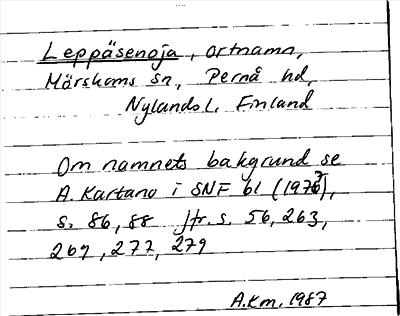 Leppäsenoja, ortnamn,
Mörskoms sn, Pernå hd,
Nylands l. Finland
Om namnets bakgrund se
A. Kartano i SNF 61 (1976),
s. 86, 88 Jfr. s. 56, 263,
269, 277, 279
A.Km. 1987